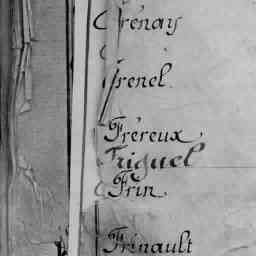 Frénay
Frenel
Fréreux
Friguel
Frin
Frinault